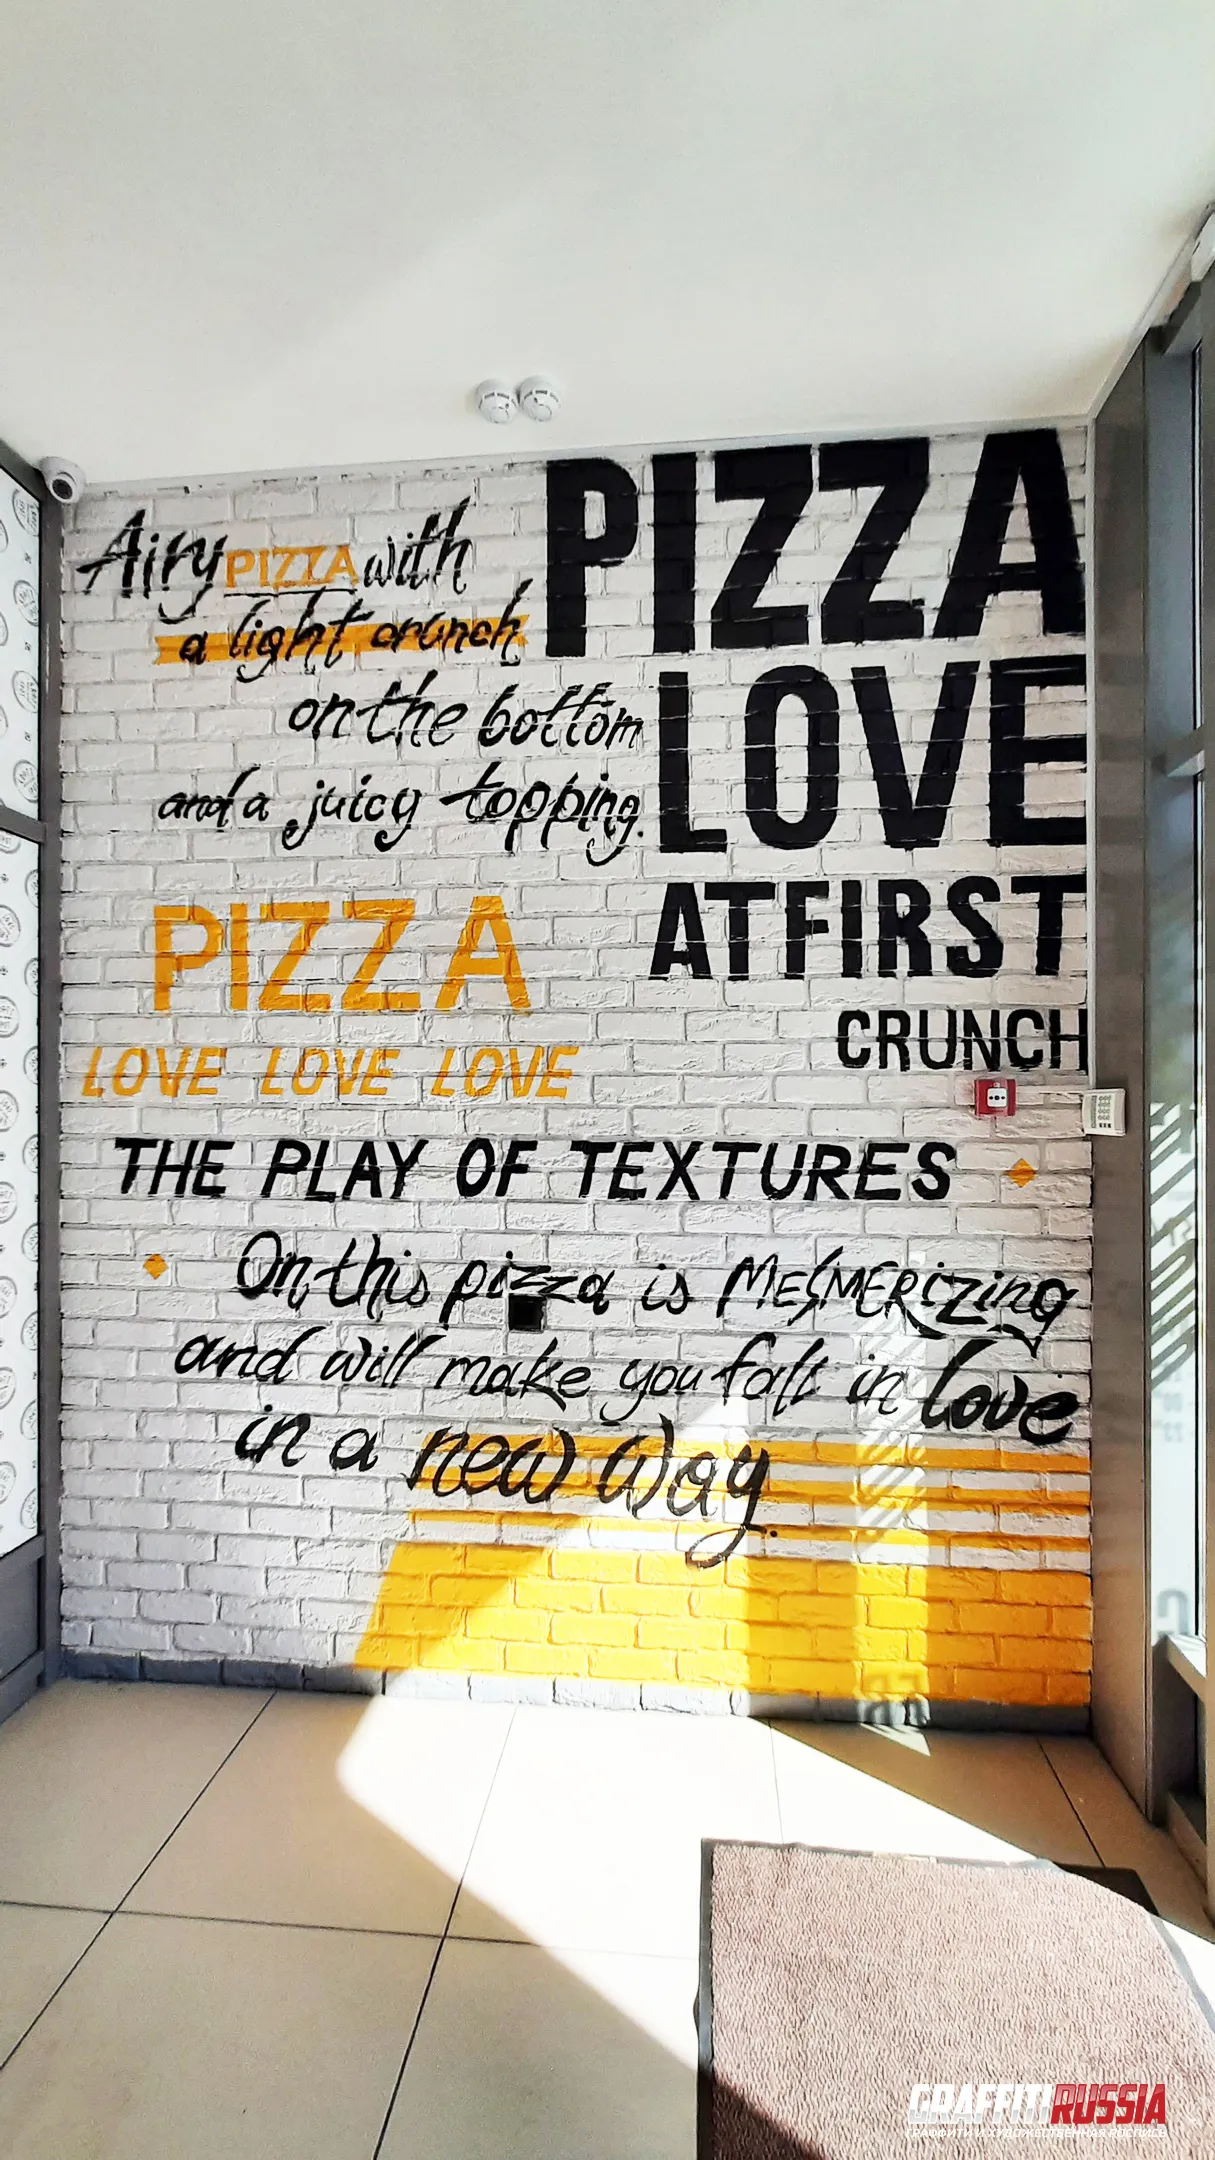 Airy PIZZA with
a light crunch
on the bottom
and a juicy topping.
PIZZA
LOVE
AT FIRST
CRUNCH
PIZZA
LOVE LOVE LOVE
THE PLAY OF TEXTURES
On this pizza is MESMERizing
and will make you fall in love
in a new way.
GRAFFITIRUSSIA
ГРАФФИТИ И ХУДОЖЕСТВЕННАЯ РОСПИСЬ